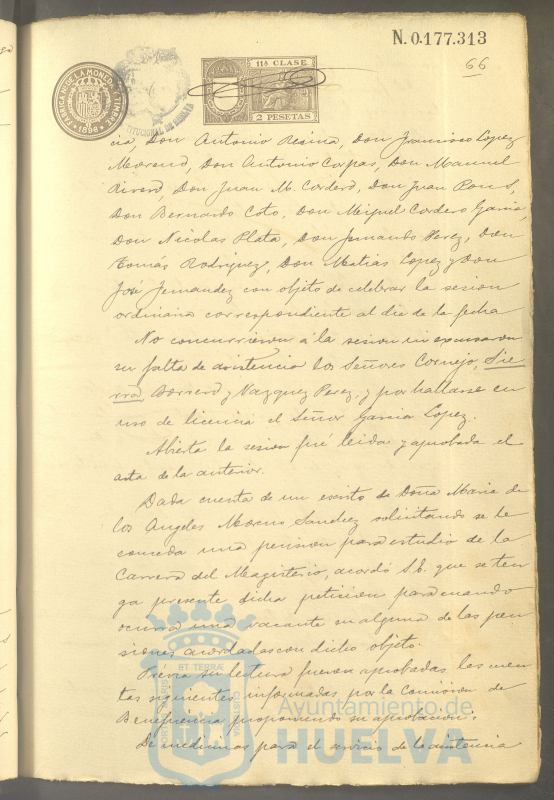 N. 0.177.313
66
FABRICA NL DE LA MONEDA Y TIMBRE
1898
11ª CLASE
2 PESETAS
cia, Don Antonio Resina, Don Francisco Lopez
Moreno, Don Antonio Corpas, Don Manuel
Rivero, Don Juan M. Cordero, Don Juan Ponce,
Don Bernardo Coto, Don Miguel Cordero Garcia,
Don Nicolas Plata, Don Fernando Perez, Don
Tomás Rodriguez, Don Matias Lopez y Don
José Fernandez con objeto de celebrar la sesion
ordinaria correspondiente al dia de la fecha
No concurrieron á la sesion ni excusaron
su falta de asistencia los Señores Cornejo, Sie-
rra, Borrero y Vazquez Perez, y por hallarse en
uso de licencia el Señor Garcia Lopez.
Abierta la sesion fué leida y aprobada el
acta de la anterior.
Dada cuenta de un escrito de Doña Maria de
los Angeles Moreno Sanchez solicitando se le
conceda una pension para estudio de la
Carrera del Magisterio, acordó S.E. que se ten
ga presente dicha peticion para cuando
ocurra una vacante en alguna de las pen
siones acordadas con dicho objeto.
Previa su lectura fueron aprobadas las cuen
tas siguientes informadas por la Comision de
Beneficencia proponiendo su aprobacion:
De medicinas para el servicio de la asistencia
Ayuntamiento de
HUELVA